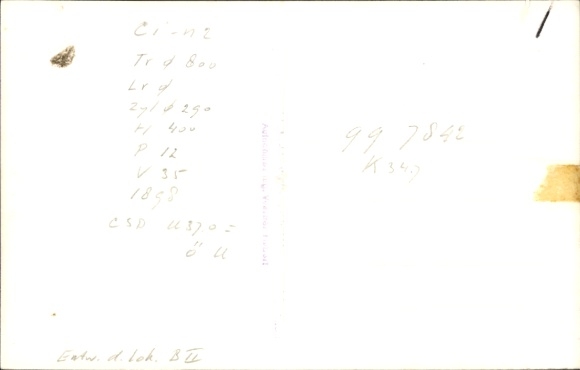 Ci-n2
Tr ø 800
Lr ø
Zyl ø 290
H 400
P 12
V 35
1898
CSD U37.0 =
ö U
99 7842
K 349
Entw. d. Lok. B II